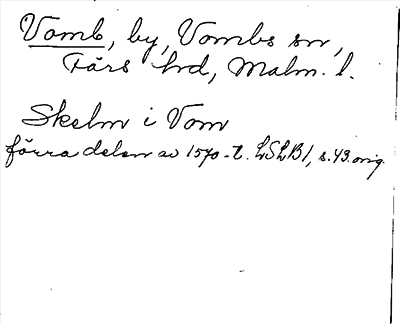 Vomb, by, Vombs sn,
Färs hd, Malm. l.
Skelm i Vom
förra delen av 1570-t. LSLB1, s. 43. orig.